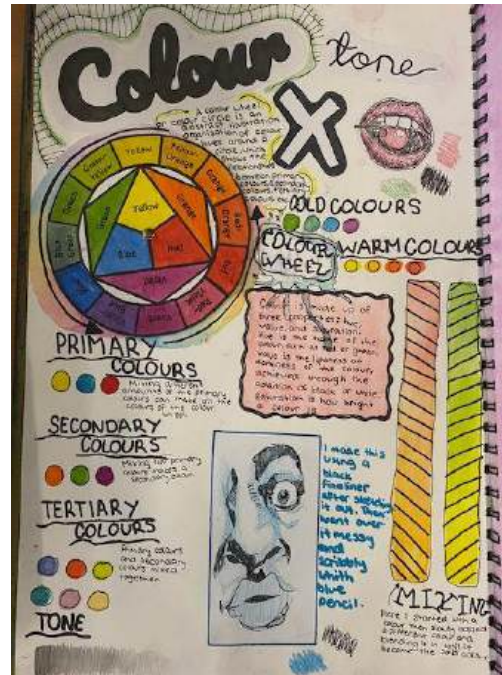 Colour
tone
X
A colour wheel
or colour circle is an
abstract illustration
organisation of colour
hues around a
circle, which
shows the
relationships
between primary
colours, secondary
colours, tertiary
colours etc.
Yellow
Yellow
Orange
Orange
Red
Orange
Red
Red
Violet
Violet
Blue
Violet
Blue
Blue
Green
Green
Green
Yellow
Yellow
Orange
Red
Violet
Blue
Green
COLD COLOURS
COLOUR
WHEEL
WARM COLOURS
Colour is made up of
three properties: hue,
value, and saturation.
Hue is the name of the
colour such as red or green,
value is the lightness or
darkness of the colours
achieved through the
addition of black or white
saturation is how bright
a colour is
PRIMARY
COLOURS
Mixing different
amounts of the primary
colours can make all the
colours of the colour
wheel
SECONDARY
COLOURS
Mixing two primary
colours makes a
secondary colour
TERTIARY
COLOURS
Primary colours
and secondary
colours mixed
together
TONE
I made this
using a
black
fineliner
after sketching
it out. Then
went over
it messy
and
scribbly
with
blue
pencil.
MIXING
Here I started with a
colour then slowly added
a different colour and
blending it in until it
became the 2nd colour